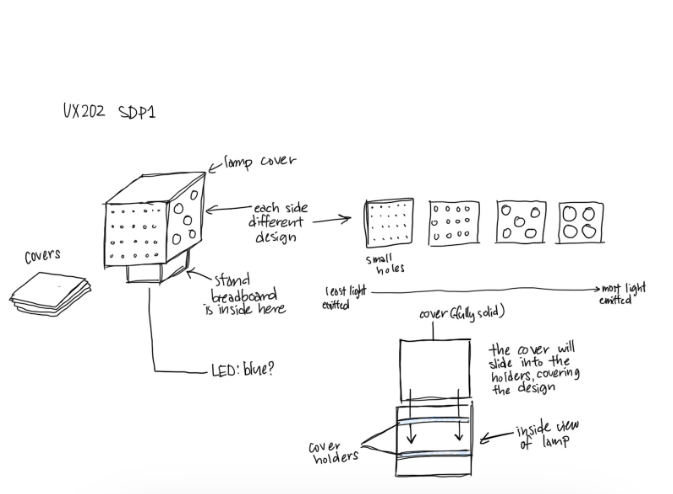 UX202 SDP1
lamp cover
each side
different
design
covers
stand
breadboard
is inside here
LED: blue?
small
holes
least light
emitted
most light
emitted
cover (fully solid)
the cover will
slide into the
holders, covering
the design
cover
holders
inside view
of lamp